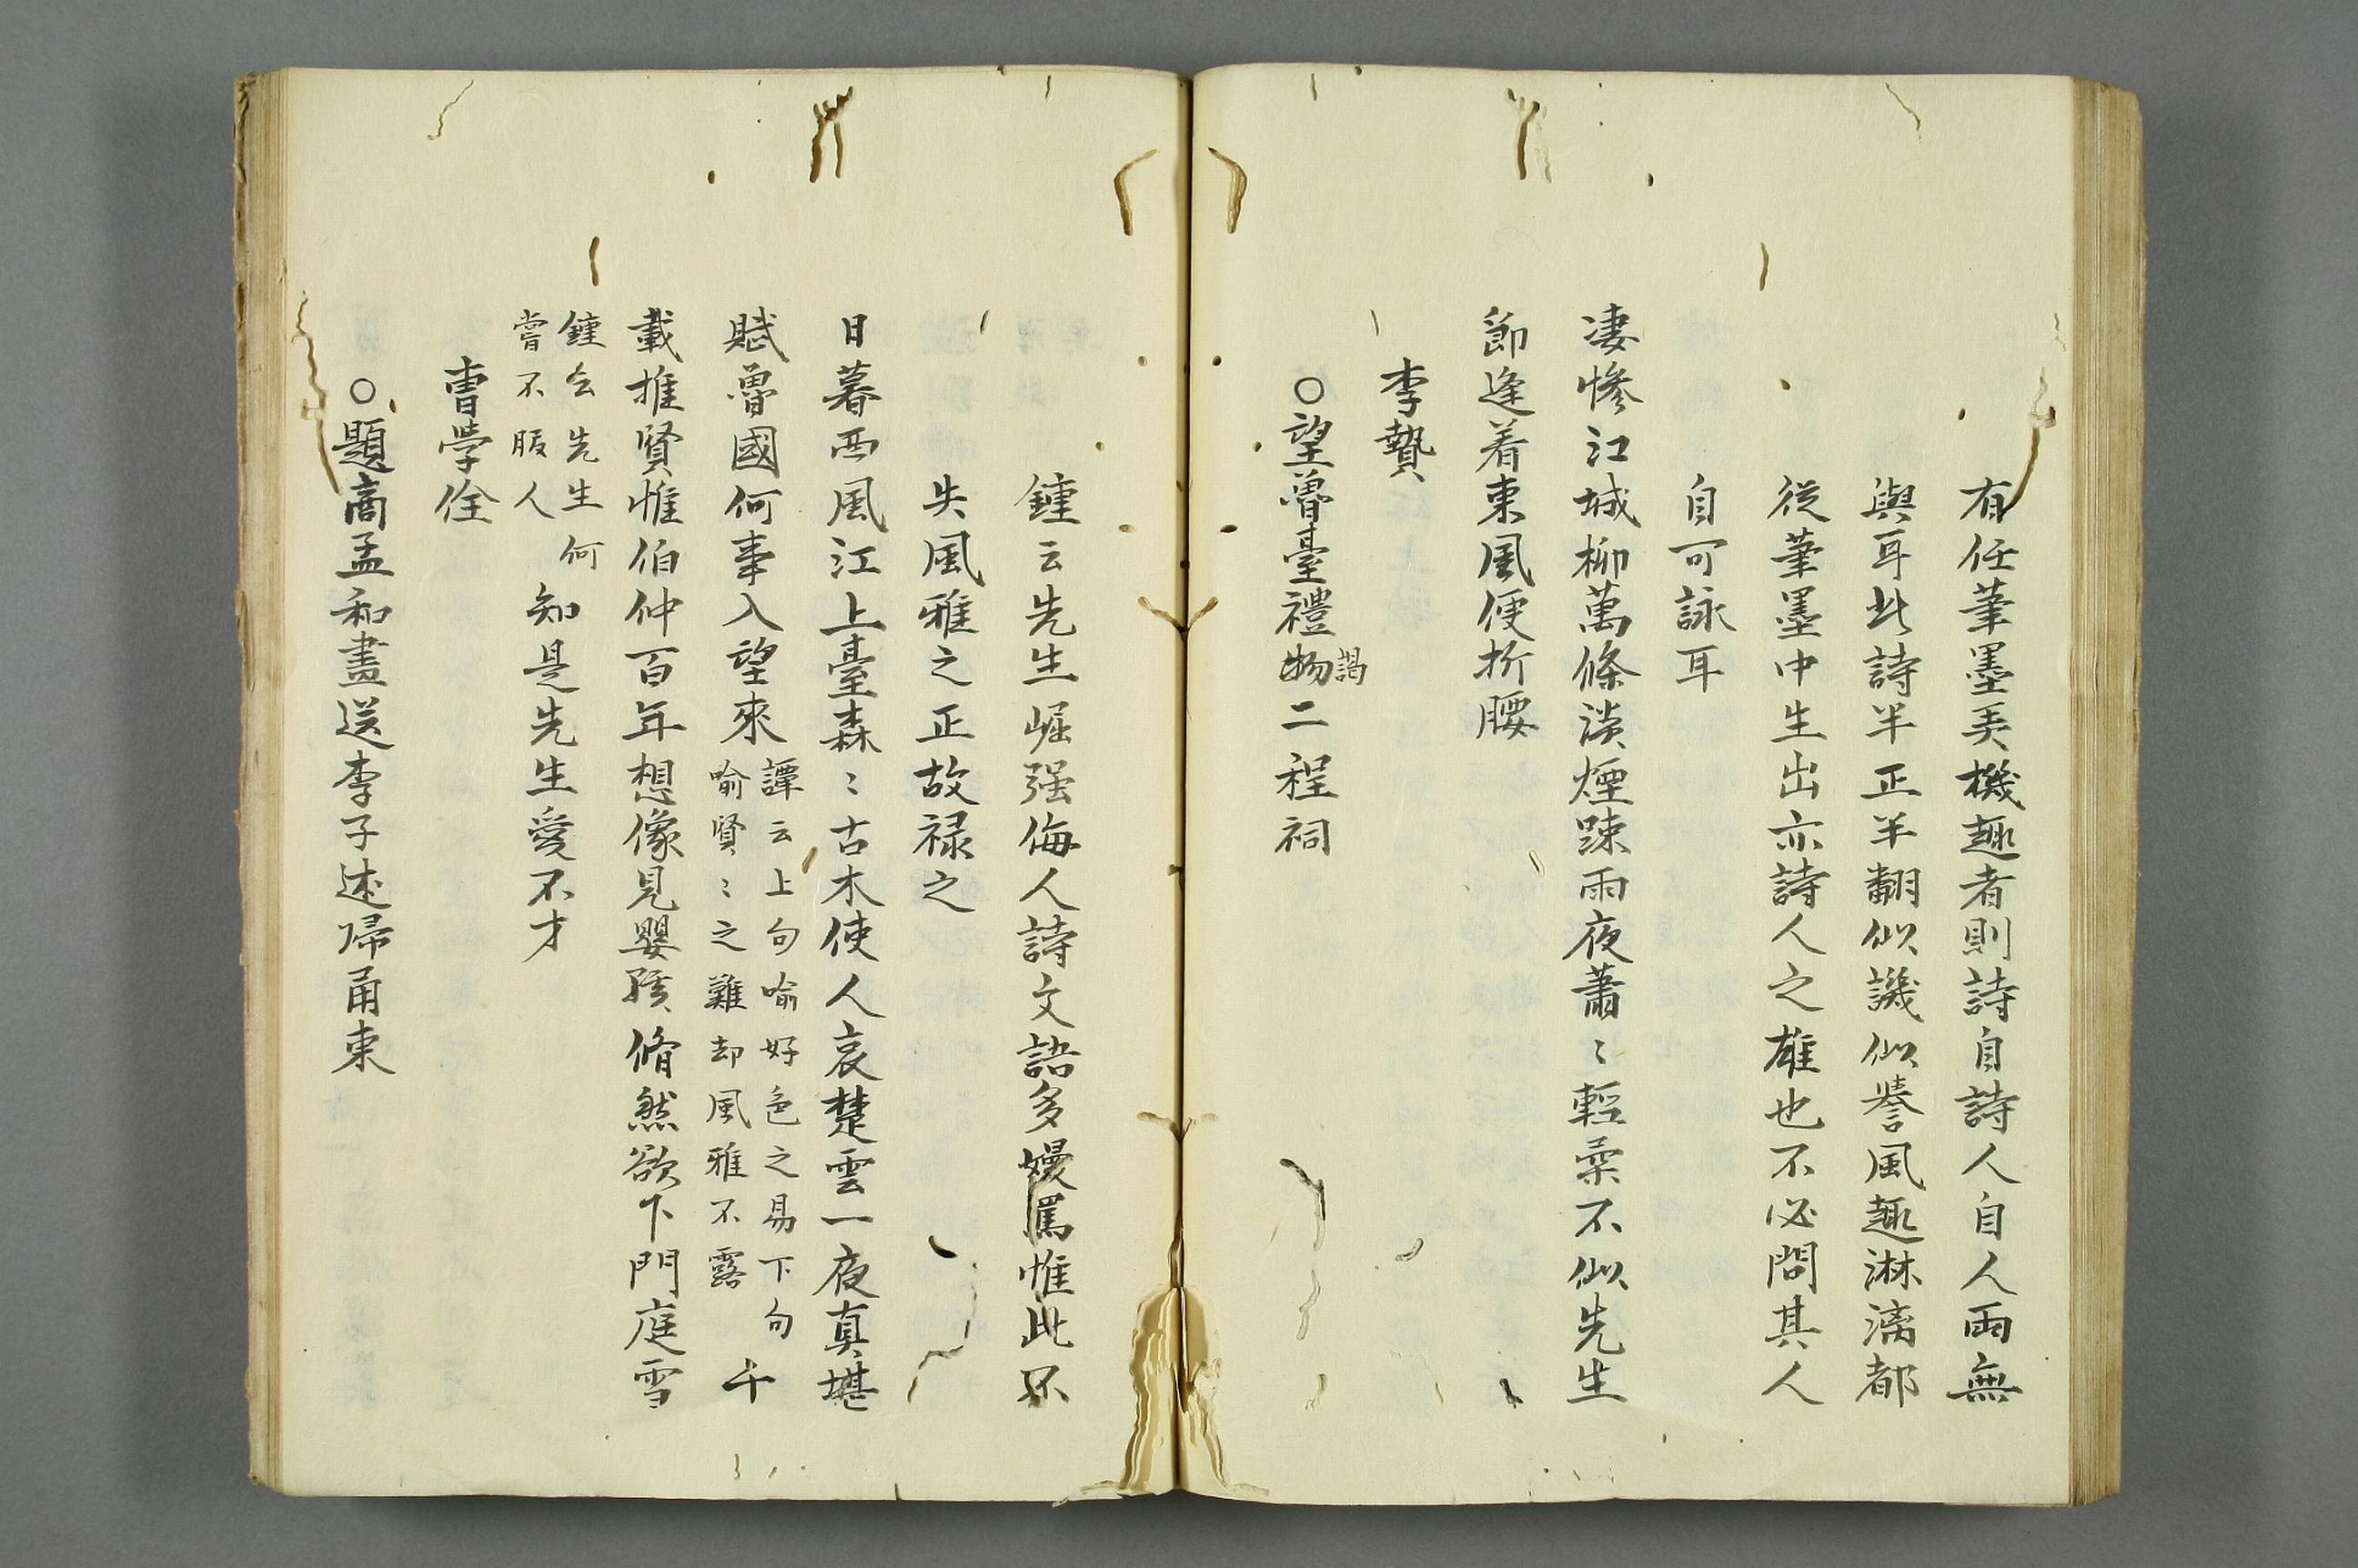 有任筆墨美機趣者則詩自詩人自人兩無
與耳此詩半正半翻似譏似譽風趣淋漓都
從筆墨中生出亦詩人之雄也不必問其人
自可詠耳
凄慘江城柳萬條淡煙踈雨夜蕭〻輕柔不似先生
節逢着東風便折腰
李贄
○望魯臺禮物謁二程祠
鍾云先生崛强侮人詩文語多嫚罵惟此不
失風雅之正故禄之
日暮西風江上臺森〻古木使人哀楚雲一夜真堪
賦魯國何事入望來譚云上句喻好色之易下句喻賢〻之難却風雅不露千
載推賢惟伯仲百年想像見嬰孩脩然欲下門庭雪
鍾云先生何嘗不服人知是先生愛不才
曹學佺
○題商孟和畫送李子述歸甬東